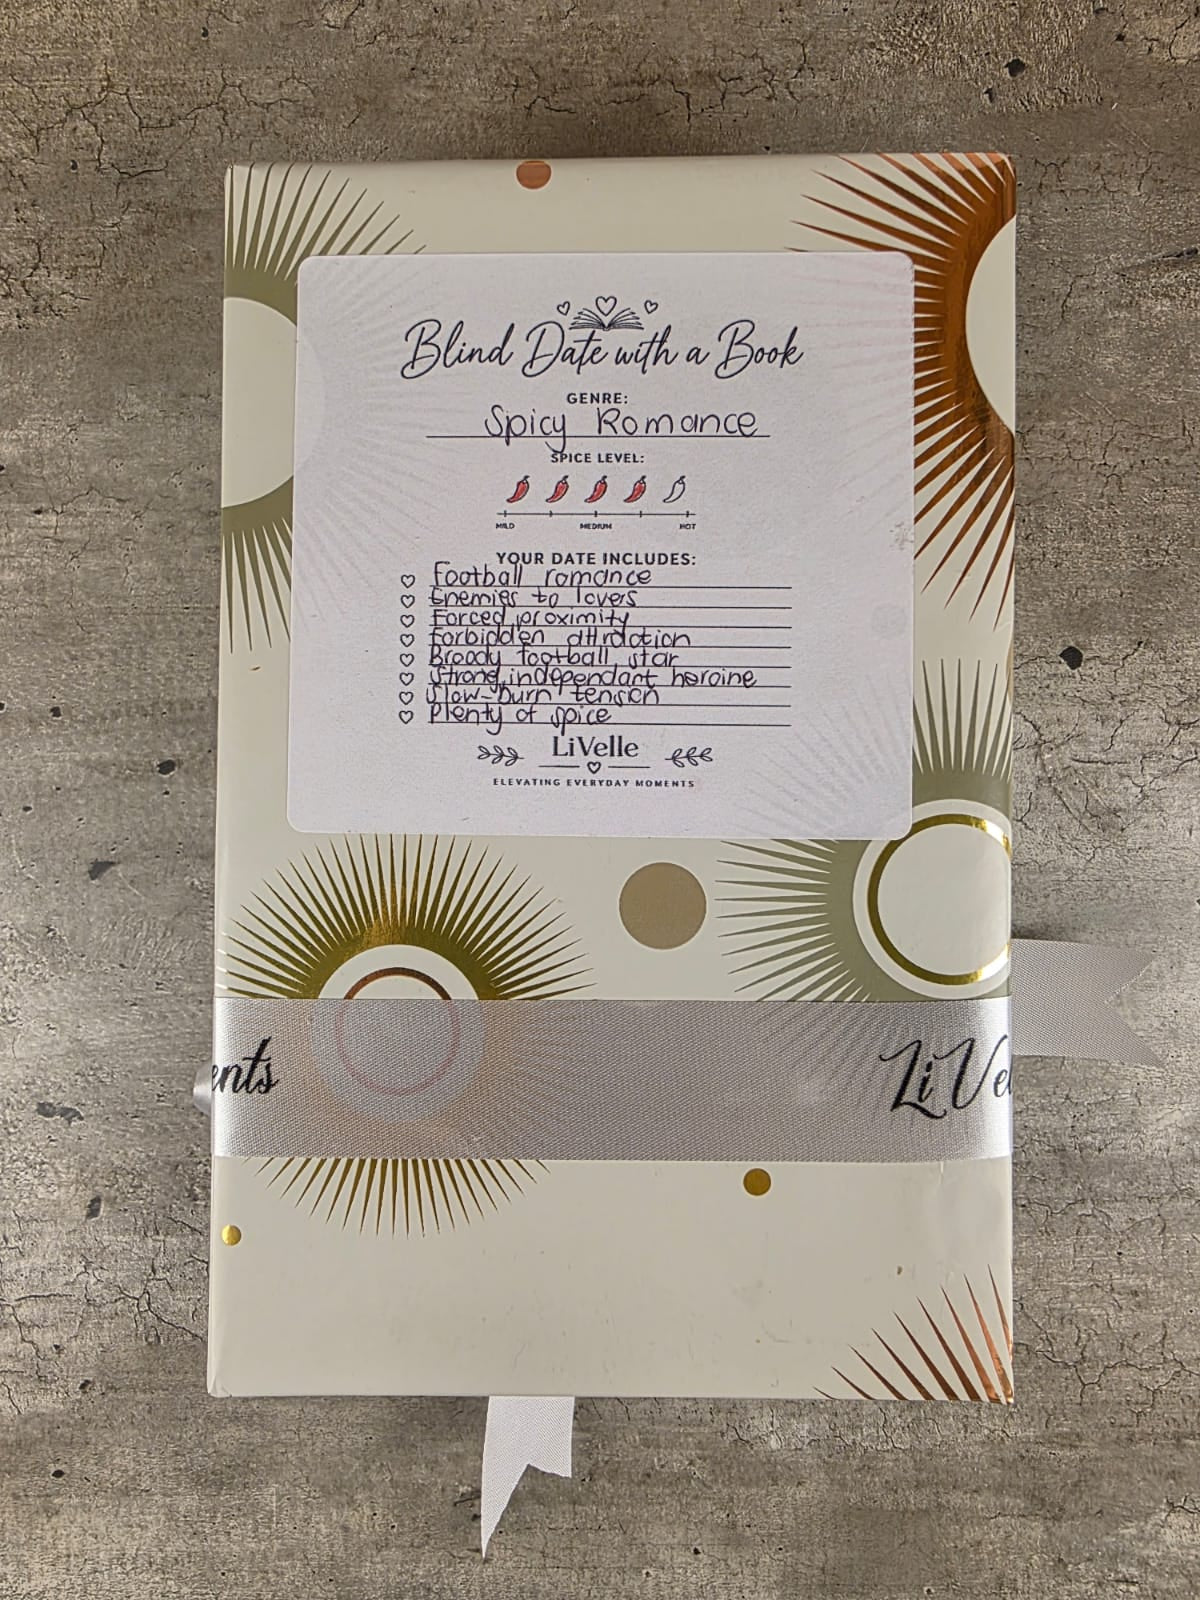 Blind Date with a Book
GENRE:
Spicy Romance
SPICE LEVEL:
MILD MEDIUM HOT
YOUR DATE INCLUDES:
Football romance
Enemies to lovers
Forced proximity
Forbidden attraction
Broody football star
Strong, independant heroine
Slow-burn tension
Plenty of spice
LiVelle
ELEVATING EVERYDAY MOMENTS
ents LiVel